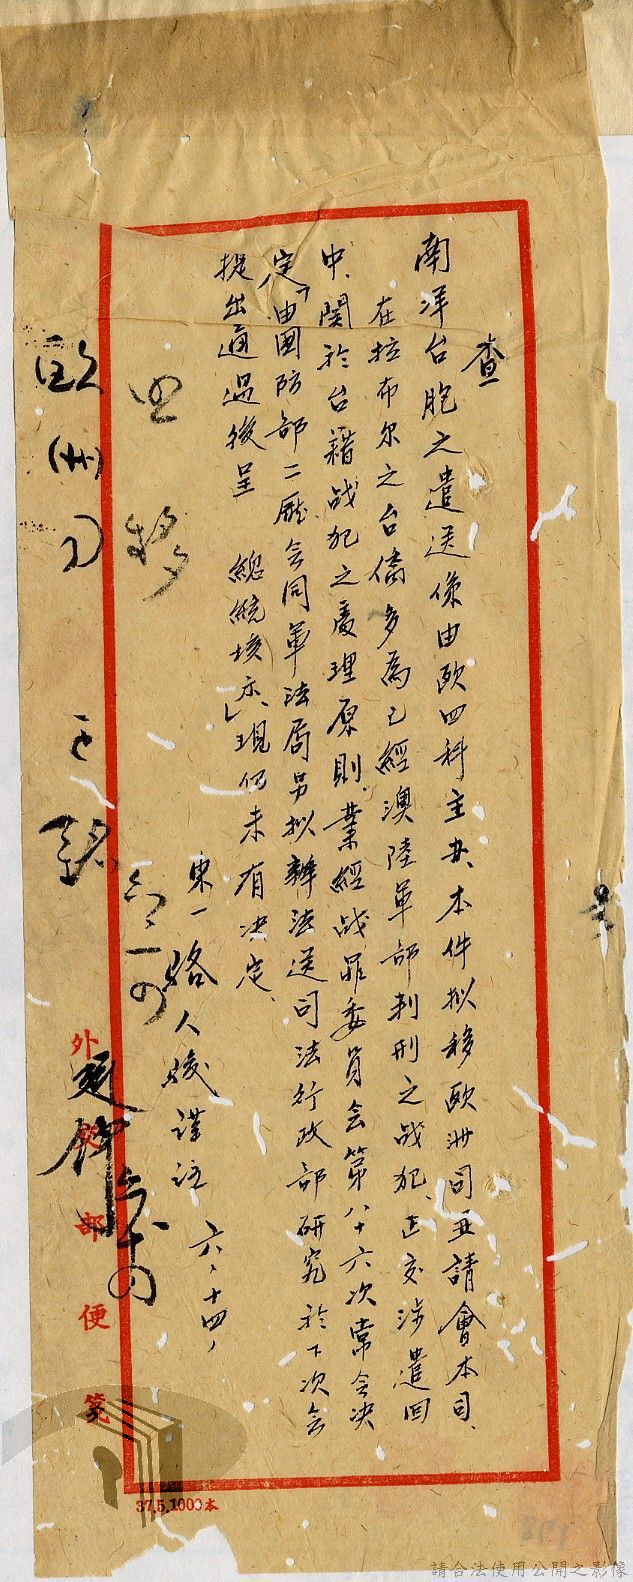 查
南洋台胞之遣送係由歐四科主办、本件拟移歐洲司並請會本司、
在拉布尔之台僑多為已經澳陸軍部判刑之战犯、正交涉遣回
中、関於台籍战犯之處理原則、業經战罪委員会第八十六次常会決
定「由國防部二廳会同軍法局另拟辦法送司法行政部研究於下次会
提出通過後呈 總統核示」現仍未有決定、
東一 人 謹註 六、十四、
歐(卅)
四 移
外交部便箋
37.5.1000本
請合法使用公開之影像